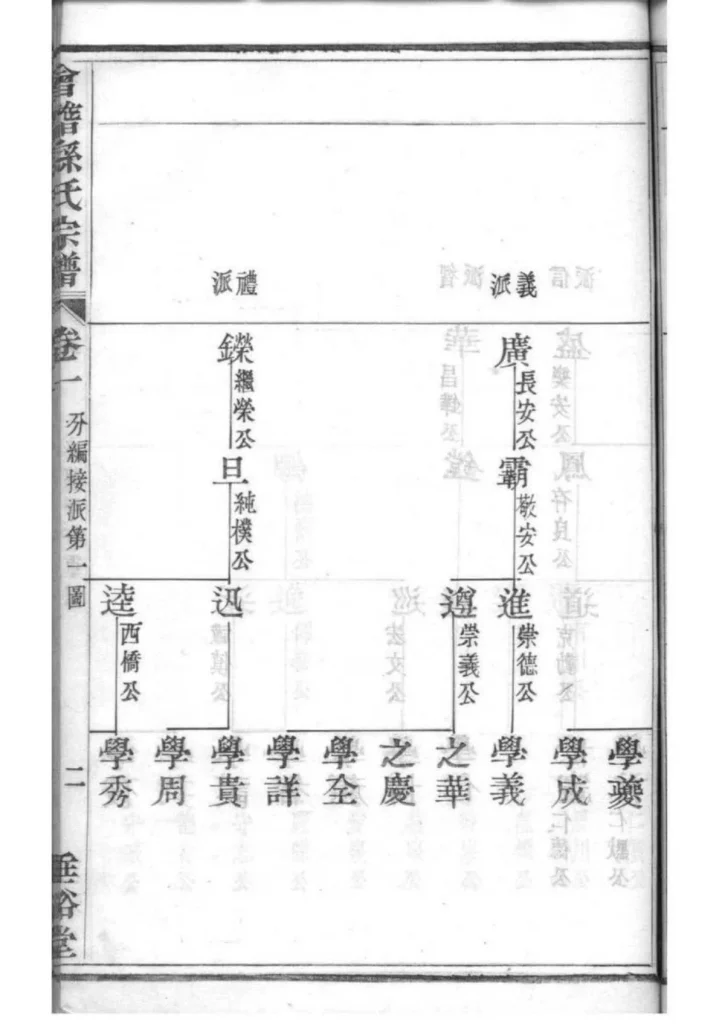 義派
禮派
廣
長安公
霸
敬安公
進
崇德公
遵
崇義公
鑅
繼榮公
旦
純樸公
迅
逵
西橋公
學夔
仁獸公
學成
仁德公
學義
之華
之慶
學全
學詳
學貴
學周
學秀
會稽孫氏宗譜
卷一
分編接派第一圖
二
垂裕堂